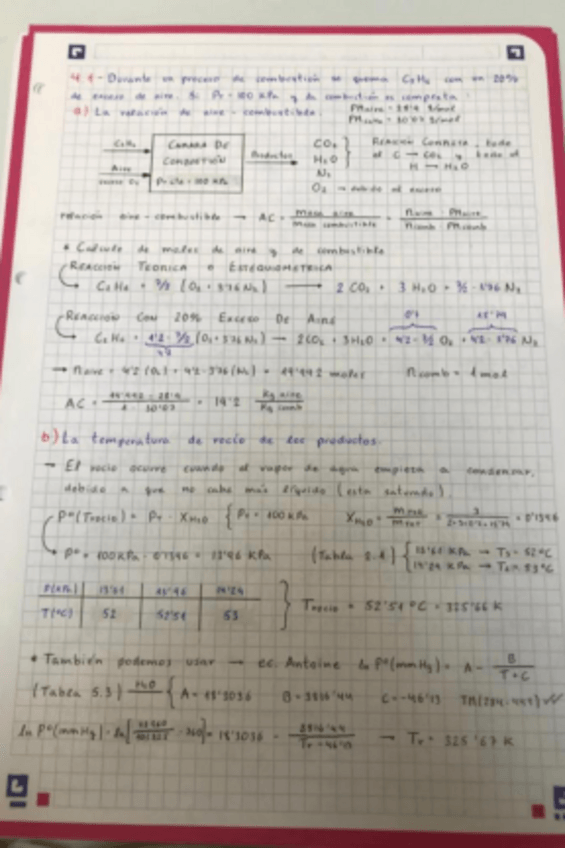 4.1 - Durante un proceso de combustión se quema C2H6 con un 20%
de exceso de aire. Si PT = 100 kPa y la combustión es completa:
a) La relación de aire - combustible.
PMaire = 28'9 g/mol
PMC2H6 = 30'07 g/mol
C2H6
Aire
exceso O2
CAMARA DE
COMBUSTIÓN
100 kPa
Productos
CO2
H2O
N2
O2 → debido al exceso
REACCIÓN COMPLETA, todo
el C → CO2 y todo el
H → H2O
relación aire - combustible → AC = masa aire / masa combustible = naire PMaire / ncomb PMcomb
* Calculo de moles de aire y de combustible
REACCIÓN TEORICA o ESTEQUIOMETRICA
C2H6 + 7/2 (O2 + 3'76 N2) → 2 CO2 + 3 H2O + 7/2 · 3'76 N2
REACCIÓN CON 20% EXCESO DE AIRE
0'7
15'79
C2H6 + 1'2 · 7/2 (O2 + 3'76 N2) → 2CO2 + 3H2O + O2 + 4'2 · 3'76 N2
4'2
→ naire = 4'2 (O2) + 4'2 · 3'76 (N2) = 19'992 moles
ncomb = 1 mol
AC = 19'992 · 28'9 / 1 · 30'07 = 19'2 Kg aire / Kg comb
b) La temperatura de rocío de los productos.
→ El rocío ocurre cuando el vapor de agua empieza a condensar,
debido a que no cabe más líquido (esta saturado).
Pº(Trocio) = PT · XH2O { PT = 100 kPa
XH2O = = 3 / 2+3+0'7+15'79 = 0'1396
Pº = 100 kPa · 0'1396 = 13'96 kPa
(Tabla { 13'61 kPa → T1 = 52ºC
14'29 kPa → T2 = 53ºC
P(kPa) 13'61 13'96 14'29
T(ºC) 52 52'51 53
Trocio = 52'51 ºC = 325'66 K
* También podemos usar → ec. Antoine ln Pº(mmHg) = A - B / T + C
(Tabla 5.3) H2O { A = 18'3036 B = 3816'44 C = -46'13
ln Pº(mmHg) = ln[13960 / 101325 · 760] = 18'3036 - 3816'44 / Tr - 46'13 → Tr = 325'67 K